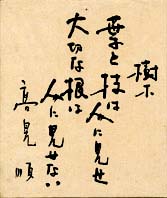 樹
葉と枝は人に見せ
大切な根は
人に見せない
高見順